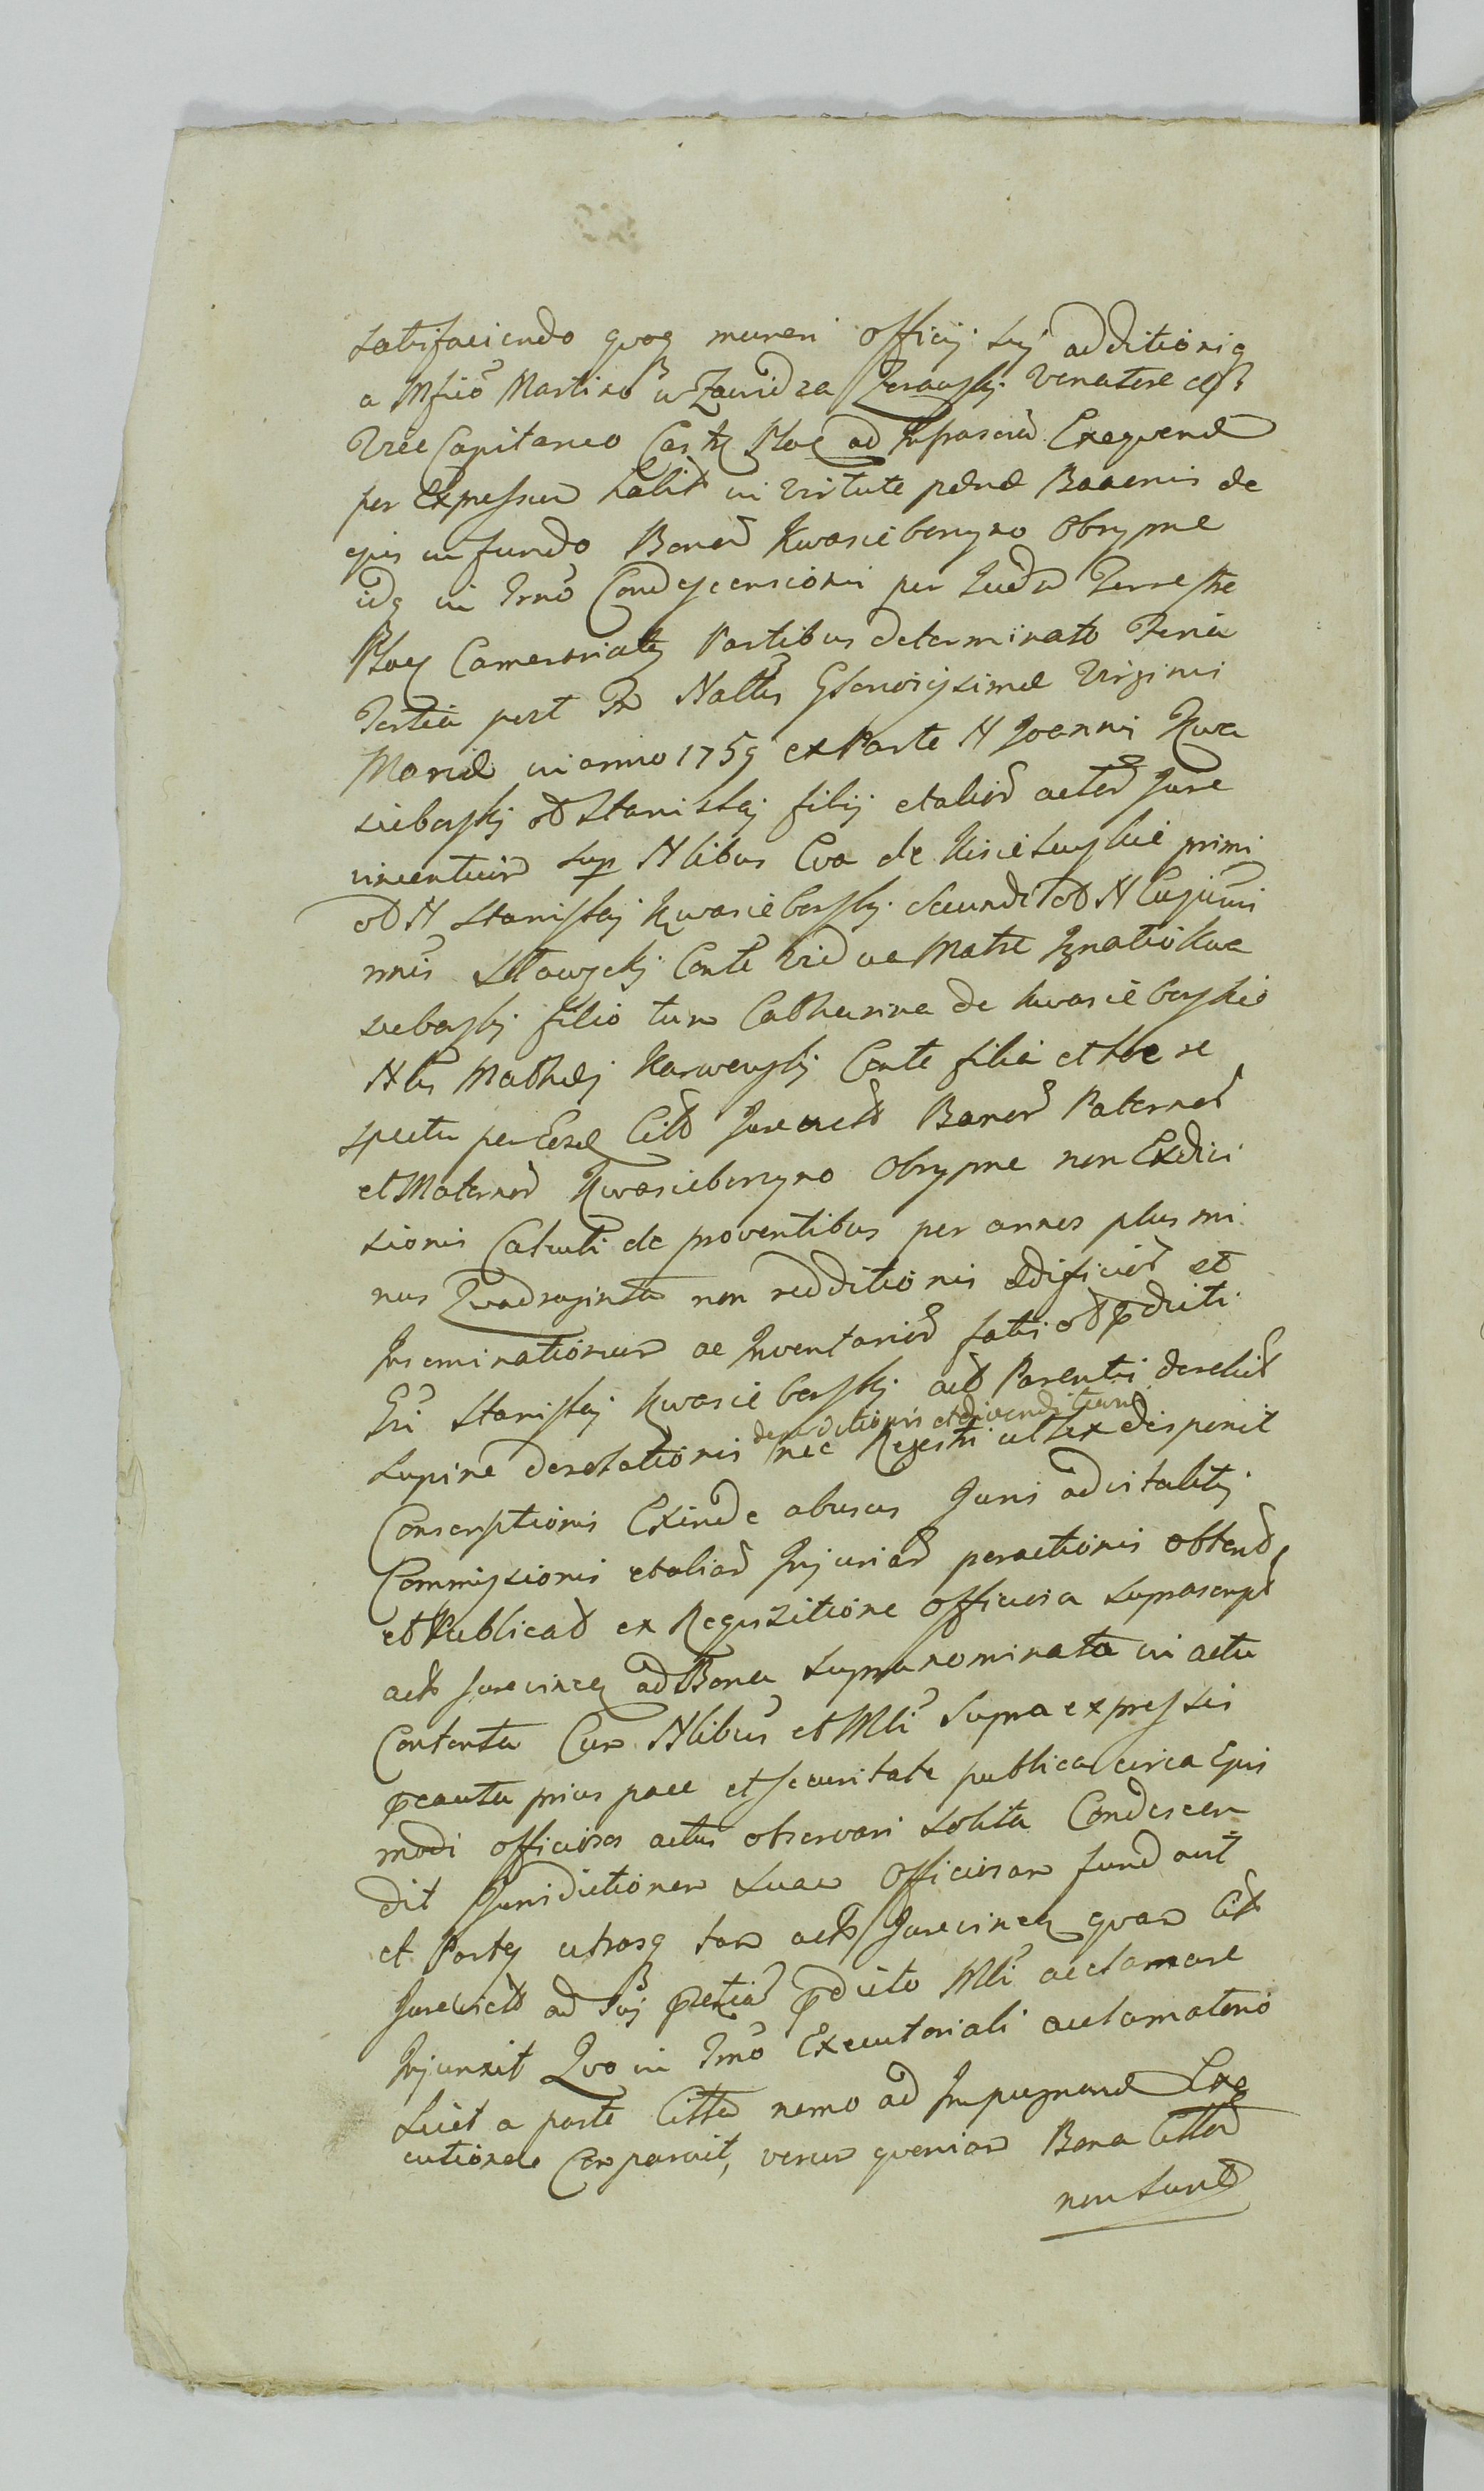 satisfaciendo quoq muneri officij sui additioniq
a Mfico Martino a Zawidza Zerawskj Venatore et
Vice Capitaneo Cas Ploc ad Infrascrid Exequend
per Expressum habit in virtute penae Bannis de
quis in fundo Bonor Kwasieborzyno Obrypne
idq in Trno Condescensionis per Judm Terrestre
Ploc Camerariatq Partibus determinato Feria
Tertia post Fm Nattis Gloriosissimae Virginis
Mariae in anno 1759 ex Parte N Joannis Kwa
sieborskj ol Stanislaj filij et alior actor Jure
vincentium sup Nlibus Eva de Kisielewskie primi
ol N Stanislaj Kwasieborskj secundi ol N
mnis Sltawyckj Conte vidua Matre Ignatio Kwa
sieborskj filio tum Catharina de Kwasieborskie
Nlis Mathaej Karwowskj Conte filia et hoc re
spectu per Eosd Citt Jurevict Bonor Paternor
et Maternor Kwasieborzyno Obrypne non Exdivi
sionis Calculi de proventibus per annos plus mi
nus Quadraginta non redditionis aedificior et
Inseminationum ac Inventarior fati ol pdicti
Gsi Stanislaj Kwasieborskj act Parentis derelict
dereditionis et divenditionis
supine desolationis nec Regestri ut lex disponit
Conscriptionis Exinde abusus Juris advitalitj
Commissionis et aliar Injuriar peractionis obtend
et Publicat ex Requisitione officiosa suprascript
act Jurevincen ad Bona supranominata in actu
Contenta Cum Nlibus et Mli supra expressis
pcauta prius pace et securitate publica circa Ejus
modi officiosos actus observari solita Condescen
dit Jurisdictionem suam Officiosam fundavit
et Partes utrasq tam act Jurevincen quam Citt
Jurevict ad Sui psentiam pdicto Mli acclamare
Injunxit Quo in Trno Executoriali acclamatorio
Licet a parte Citta nemo ad Impugnand Exe
cutionem Comparuit, verum quoniam Bona Cittor
non sunt